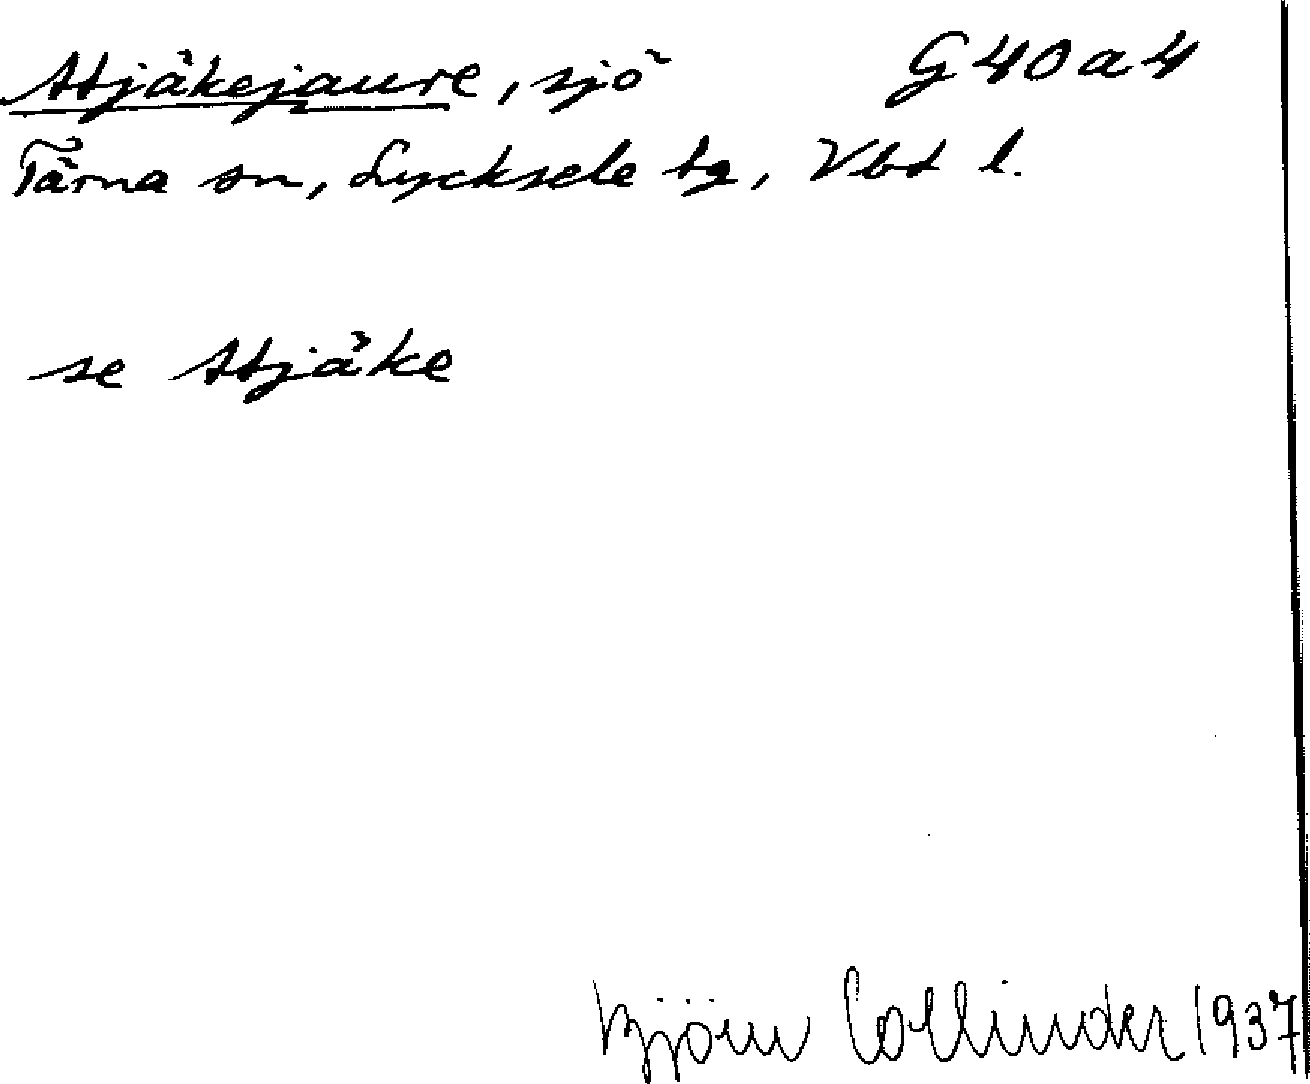 Atjäkejaure, sjö G40a4
Tärna sn, Lycksele tg, Vbt l.
se Atjäke
Björn Collinder 1937